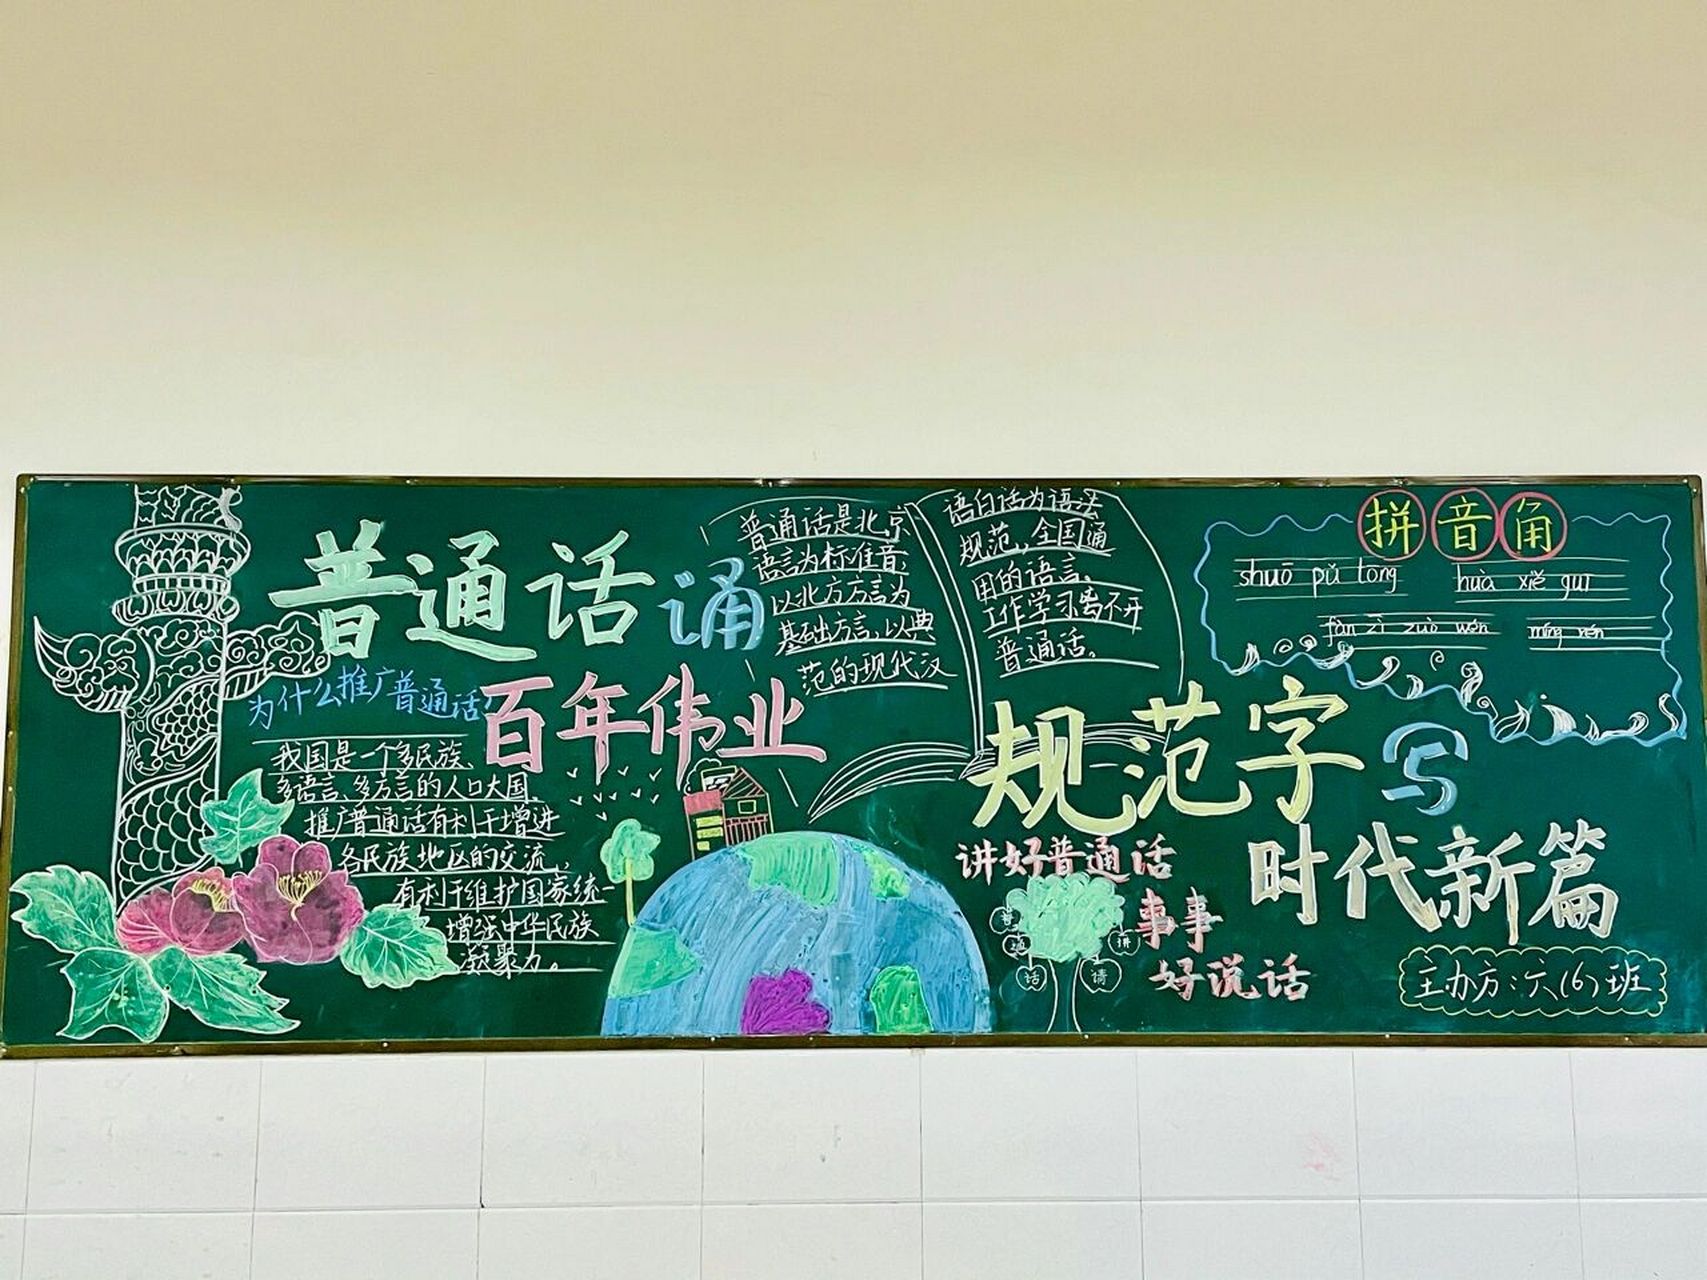 普通话诵
百年伟业
为什么推广普通话
我国是一个多民族、
多语言、多方言的人口大国,
推广普通话有利于增进
各民族地区的交流,
有利于维护国家统一
增强中华民族
凝聚力。
普通话是北京
语言为标准音,
以北方方言为
基础方言,以典
范的现代汉
语白话为语法
规范,全国通
用的语言。
工作学习离不开
普通话。
规范字写
时代新篇
讲好普通话
事事
好说话
普
通
话
讲
请
拼音角
shuō pǔ tōng
huà xiě guī
fàn zì zuò wén
míng rén
主办方:六(6)班